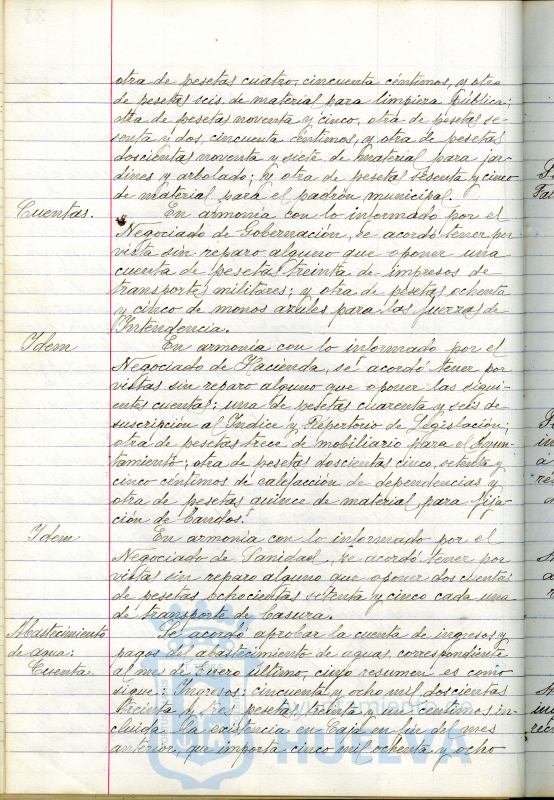 otra de pesetas cuatro, cincuenta céntimos, y otra
de pesetas seis de material para limpieza pública;
otra de pesetas noventa y cinco, otra de pesetas se-
senta y dos, cincuenta céntimos, y otra de pesetas
doscientas noventa y siete de material para jar-
dines y arbolado; y otra de pesetas sesenta y cinco
de material para el padrón municipal.
Cuentas. En armonía con lo informado por el
Negociado de Gobernación, se acordó tener por
vista sin reparo alguno que oponer una
cuenta de pesetas treinta de impresos de
transportes militares; y otra de pesetas ochenta
y cinco de monos azules para las fuerzas de
Intendencia.
Idem En armonía con lo informado por el
Negociado de Hacienda, se acordó tener por
vistas sin reparo alguno que oponer las sigui-
entes cuentas: una de pesetas cuarenta y seis de
suscripción al Indice y Repertorio de Legislación;
otra de pesetas trece de mobiliario para el Ayun-
tamiento; otra de pesetas doscientas cinco, setenta y
cinco céntimos de calefacción de dependencias y
otra de pesetas quince de material para fija-
ción de bandos.
Idem En armonía con lo informado por el
Negociado de Sanidad, se acordó tener por
vistas sin reparo alguno que oponer dos cuentas
de pesetas ochocientas setenta y cinco cada una
de transporte de basura.
Abastecimiento Se acordó aprobar la cuenta de ingresos y
de agua: pagos del abastecimiento de aguas, correspondiente
Cuenta. al mes de Enero último, cuyo resumen es como
sigue: Ingresos: cincuenta y ocho mil, doscientas
treinta y tres pesetas, treinta y un céntimos in-
cluida la existencia en Caja en fin del mes
anterior, que importa cinco mil ochenta y ocho
Ayuntamiento de
HUELVA